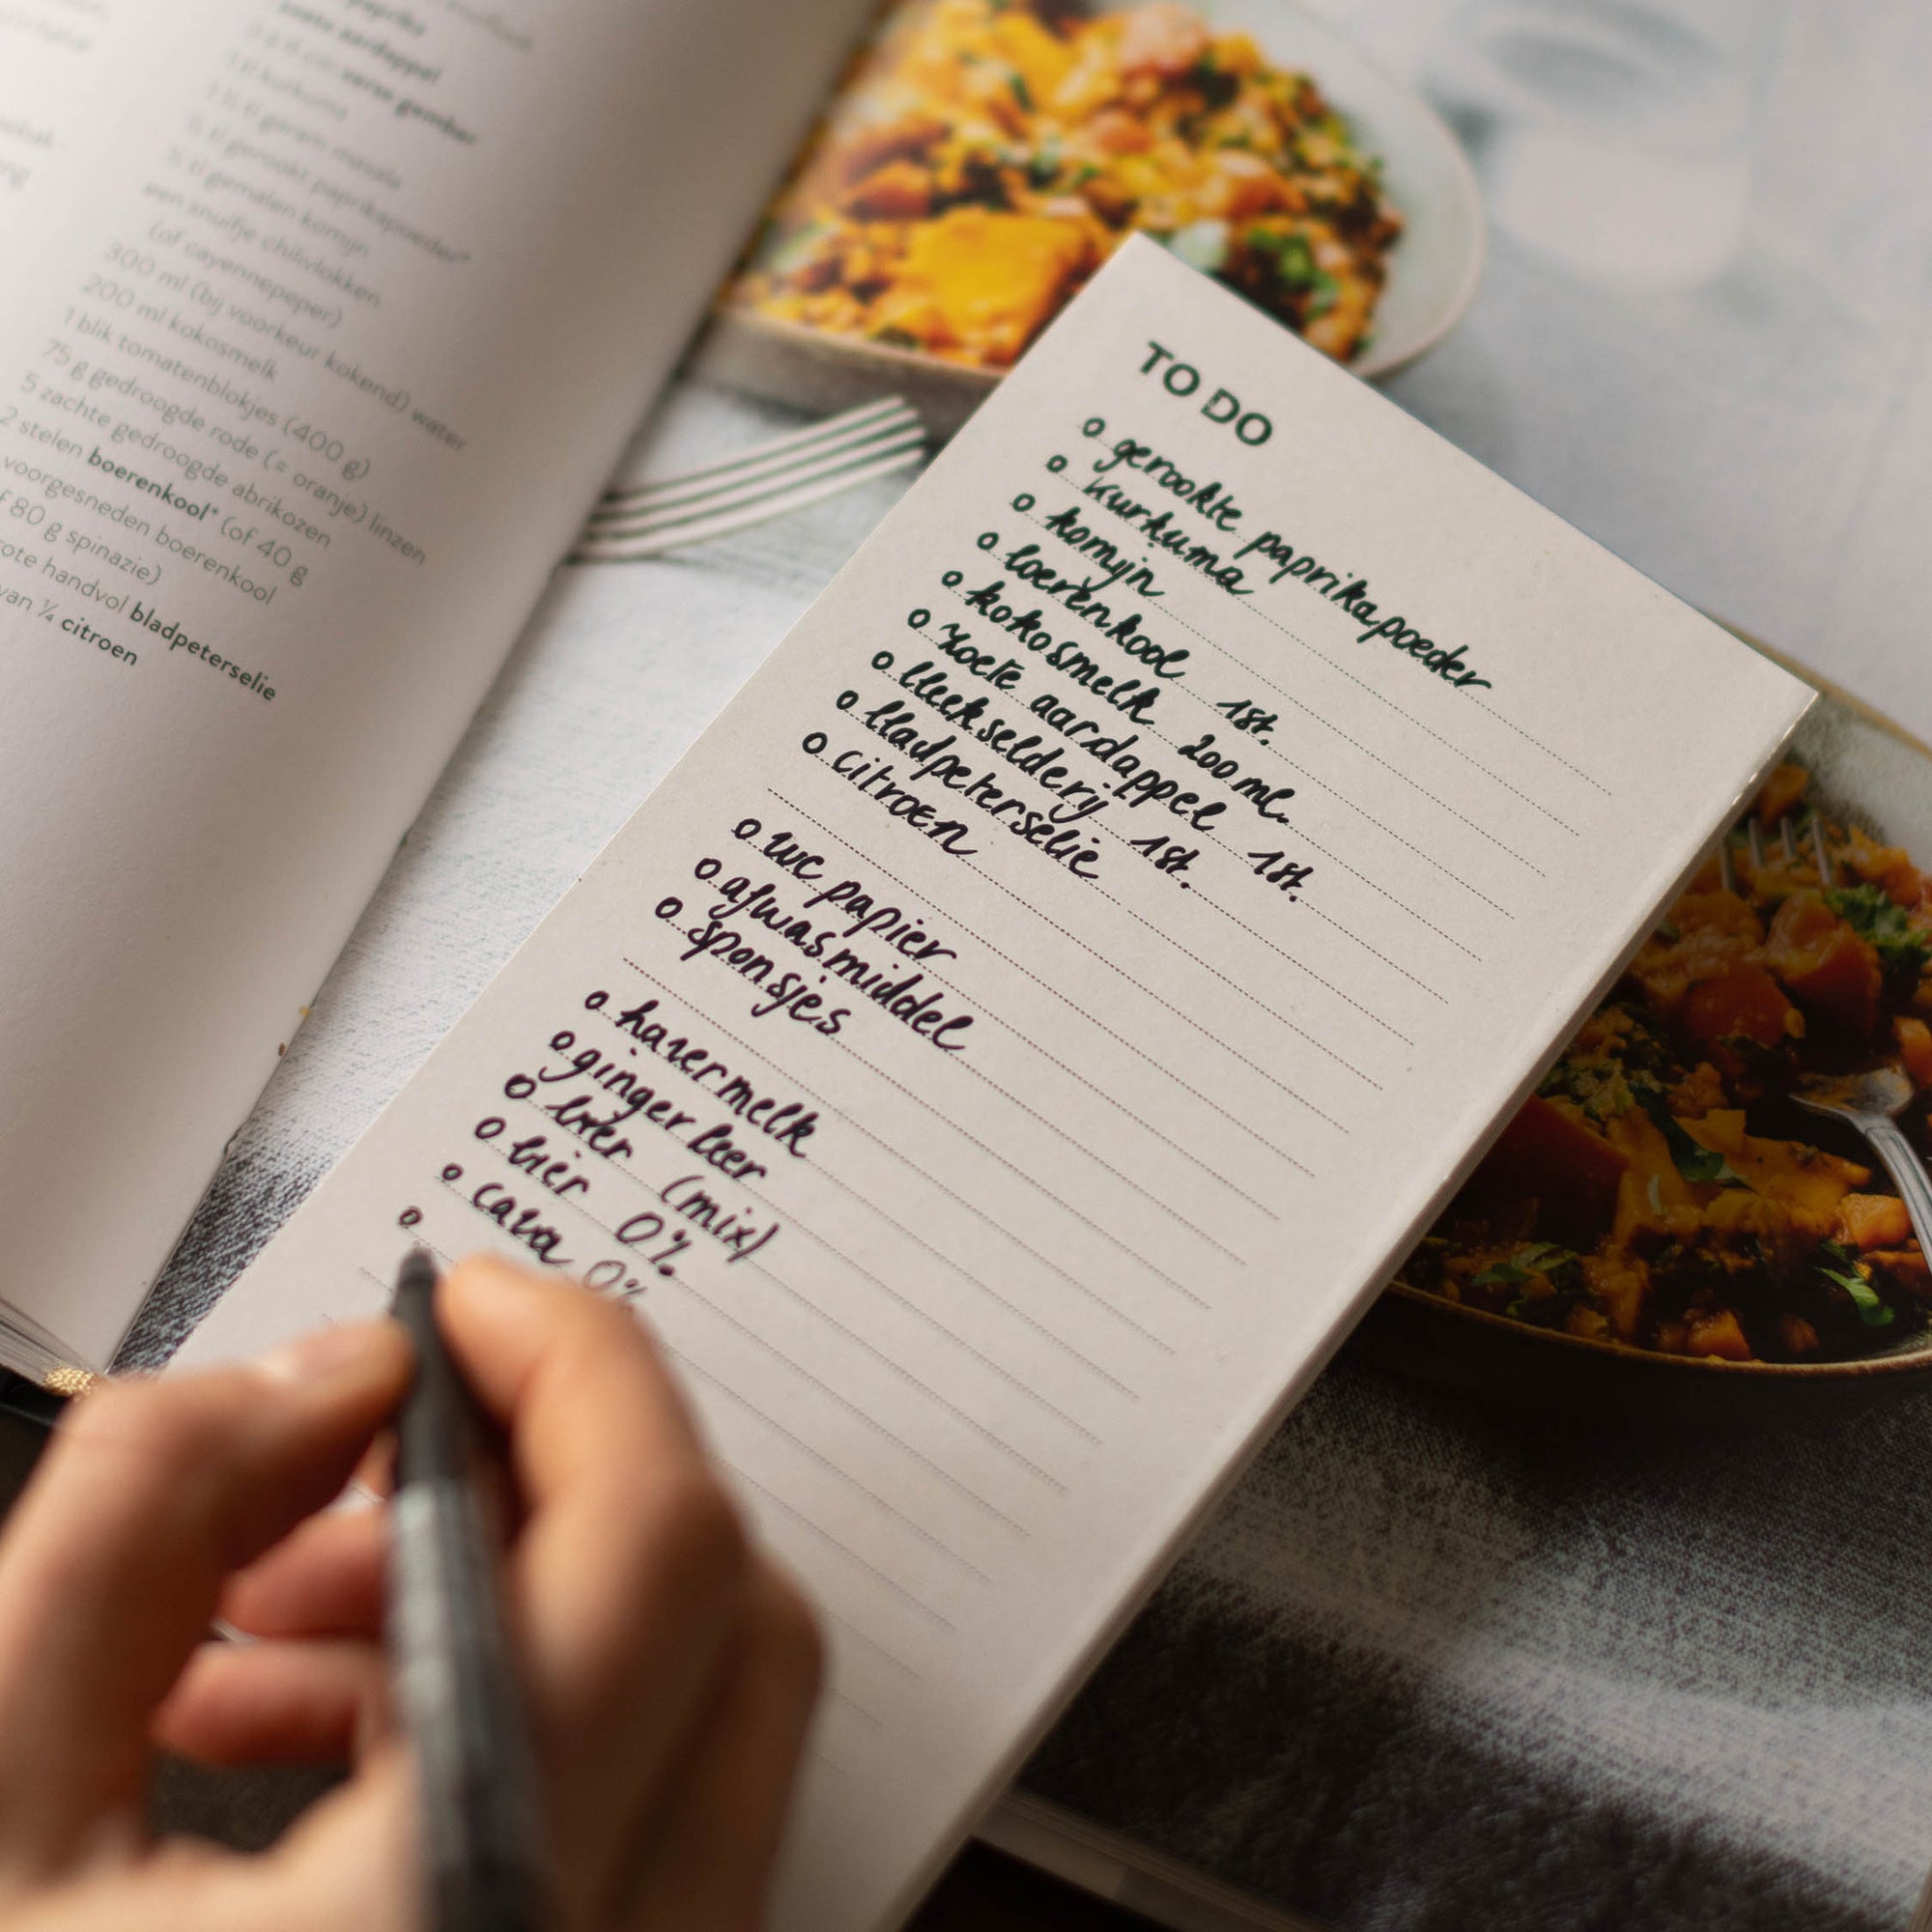 paprika
zoete aardappel
verse gember
1 tl kurkuma
1 ½ tl garam masala
½ tl gerookt paprikapoeder*
½ tl gemalen komijn
een snufje chilivlokken
(of cayennepeper)
300 ml (bij voorkeur kokend) water
200 ml kokosmelk
1 blik tomatenblokjes (400 g)
75 g gedroogde rode (= oranje) linzen
5 zachte gedroogde abrikozen
2 stelen boerenkool* (of 40 g
voorgesneden boerenkool
80 g spinazie)
handvol bladpeterselie
van ¼ citroen
TO DO
o gerookte paprikapoeder
o kurkuma
o komijn
o boerenkool 1st.
o kokosmelk 200 ml.
o zoete aardappel 1st.
o bleekselderij 1st.
o bladpeterselie
o citroen
o wc papier
o afwasmiddel
o sponsjes
o havermelk
o gingerbeer
o (mix)
o bier 0%
o cava 0%
o